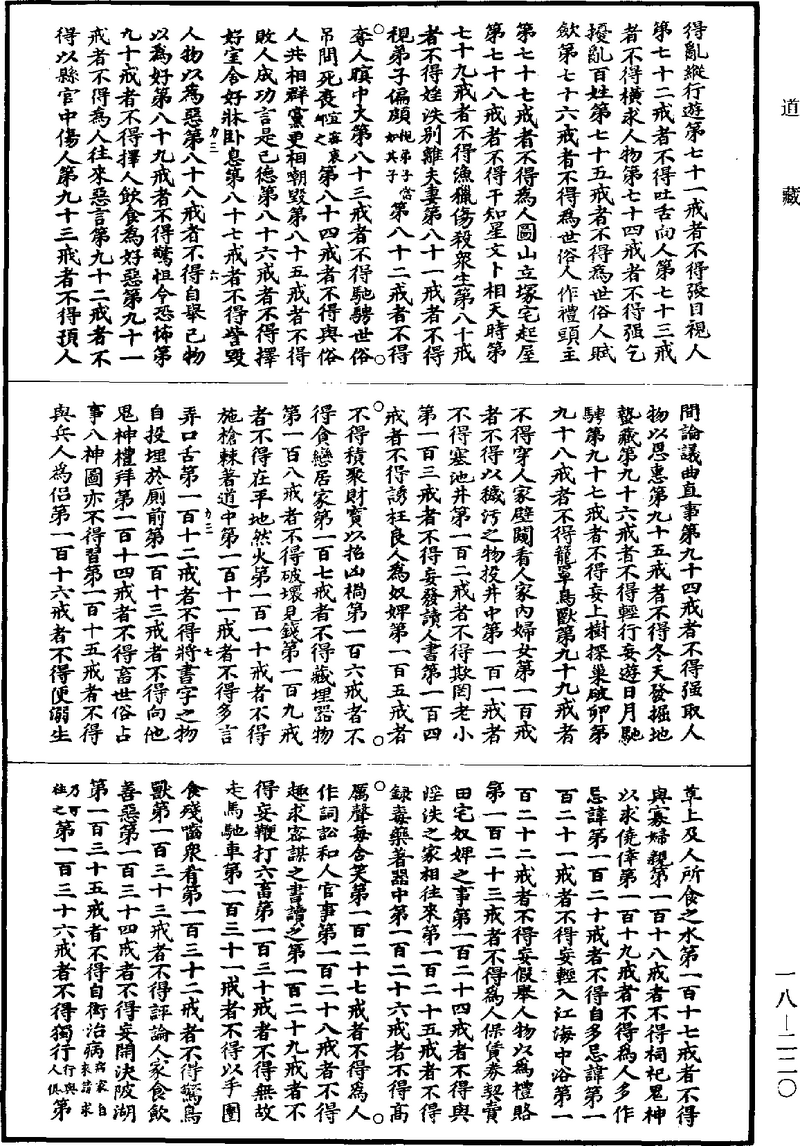 道藏
得亂縱行遊第七十一戒者不得張目視人
第七十二戒者不得吐舌向人第七十三戒
者不得橫求人物第七十四戒者不得强乞
擾亂百姓第七十五戒者不得為世俗人賦
歛第七十六戒者不得為世俗人作禮頭主
第七十七戒者不得為人圖山立塚宅起屋
第七十八戒者不得干知星文卜相天時第
七十九戒者不得漁獵傷殺衆生第八十戒
者不得婬泆别離夫妻第八十一戒者不得
視弟子偏頗視弟子當如其子第八十二戒者不得
奪人瞑中火第八十三戒者不得馳騁世俗
吊問死喪宜密哀卹之第八十四戒者不得與俗
人共相群黨更相嘲毀第八十五戒者不得
敗人成功言是己德第八十六戒者不得擇
好室舍好牀卧息第八十七戒者不得訾毀
力三 六
人物以為惡第八十八戒者不得自舉己物
以為好第八十九戒者不得驚怛令恐怖第
九十戒者不得擇人飲食為好惡第九十一
戒者不得為人往來惡言第九十二戒者不
得以縣官中傷人第九十三戒者不得預人
間論議曲直事第九十四戒者不得强取人
物以恩惠第九十五戒者不得冬天發掘地
蟄藏第九十六戒者不得輕行妄遊日月馳
騁第九十七戒者不得妄上樹探巢破卵第
九十八戒者不得籠罩鳥獸第九十九戒者
不得穿人家壁闚看人家內婦女第一百戒
者不得以穢污之物投井中第一百一戒者
不得塞池井第一百二戒者不得欺罔老小
第一百三戒者不得妄發讀人書第一百四
戒者不得誘枉良人為奴婢第一百五戒者
不得積聚財寶以招凶禍第一百六戒者不
得貪戀居家第一百七戒者不得藏埋器物
第一百八戒者不得破壞見錢第一百九戒
者不得在平地然火第一百一十戒者不得
施槍棘著道中第一百十一戒者不得多言
力三 七
弄口舌第一百十二戒者不得將書字之物
自投埋於厠前第一百十三戒者不得向他
鬼神禮拜第一百十四戒者不得畜世俗占
事八神圖亦不得習第一百十五戒者不得
與兵人為侶第一百十六戒者不得便溺生
草上及人所食之水第一百十七戒者不得
與寡婦親第一百十八戒者不得祠祀鬼神
以求僥倖第一百十九戒者不得為人多作
忌諱第一百二十戒者不得自多忌諱第一
百二十一戒者不得妄輕入江海中浴第一
百二十二戒者不得妄假舉人物以為禮賂
第一百二十三戒者不得為人保賃券契賣
田宅奴婢之事第一百二十四戒者不得與
淫泆之家相往來第一百二十五戒者不得
録毒藥著器中第一百二十六戒者不得高
厲聲每含笑第一百二十七戒者不得為人
作詞訟和人官事第一百二十八戒者不得
趣求密謀之書讀之第一百二十九戒者不
得妄鞭打六畜第一百三十戒者不得無故
走馬馳車第一百三十一戒者不得以手團
食殘嚙衆肴第一百三十二戒者不得驚鳥
獸第一百三十三戒者不得評論人家食飲
善惡第一百三十四戒者不得妄開決陂湖
第一百三十五戒者不得自衒治病病家自來請求
乃可往之第一百三十六戒者不得獨行行與人俱第
一八－二二〇